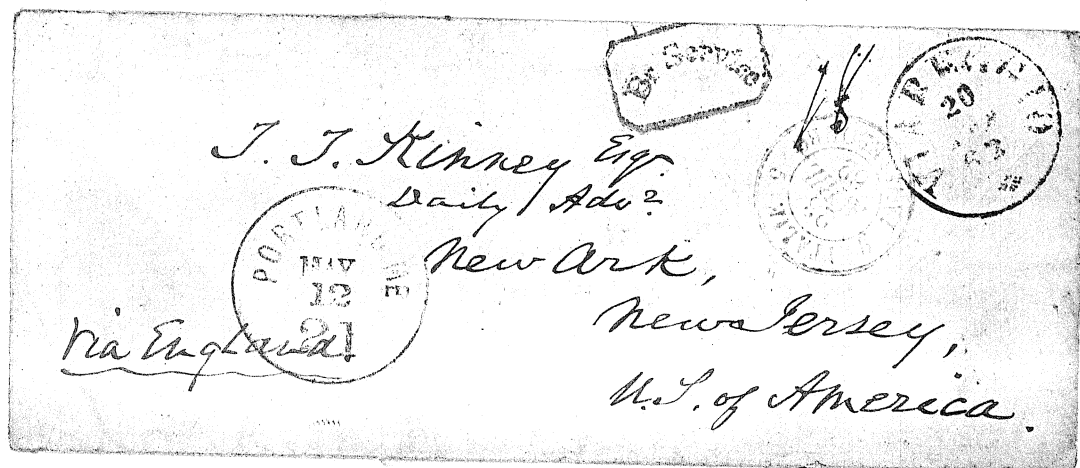 Br Service
18
20
62
T. T. Kinney Esqr.
Daily Advr.
New Ark,
New Jersey,
U.S. of America.
PORTLAND ME
MAY
12
21
Via England
ITALIE